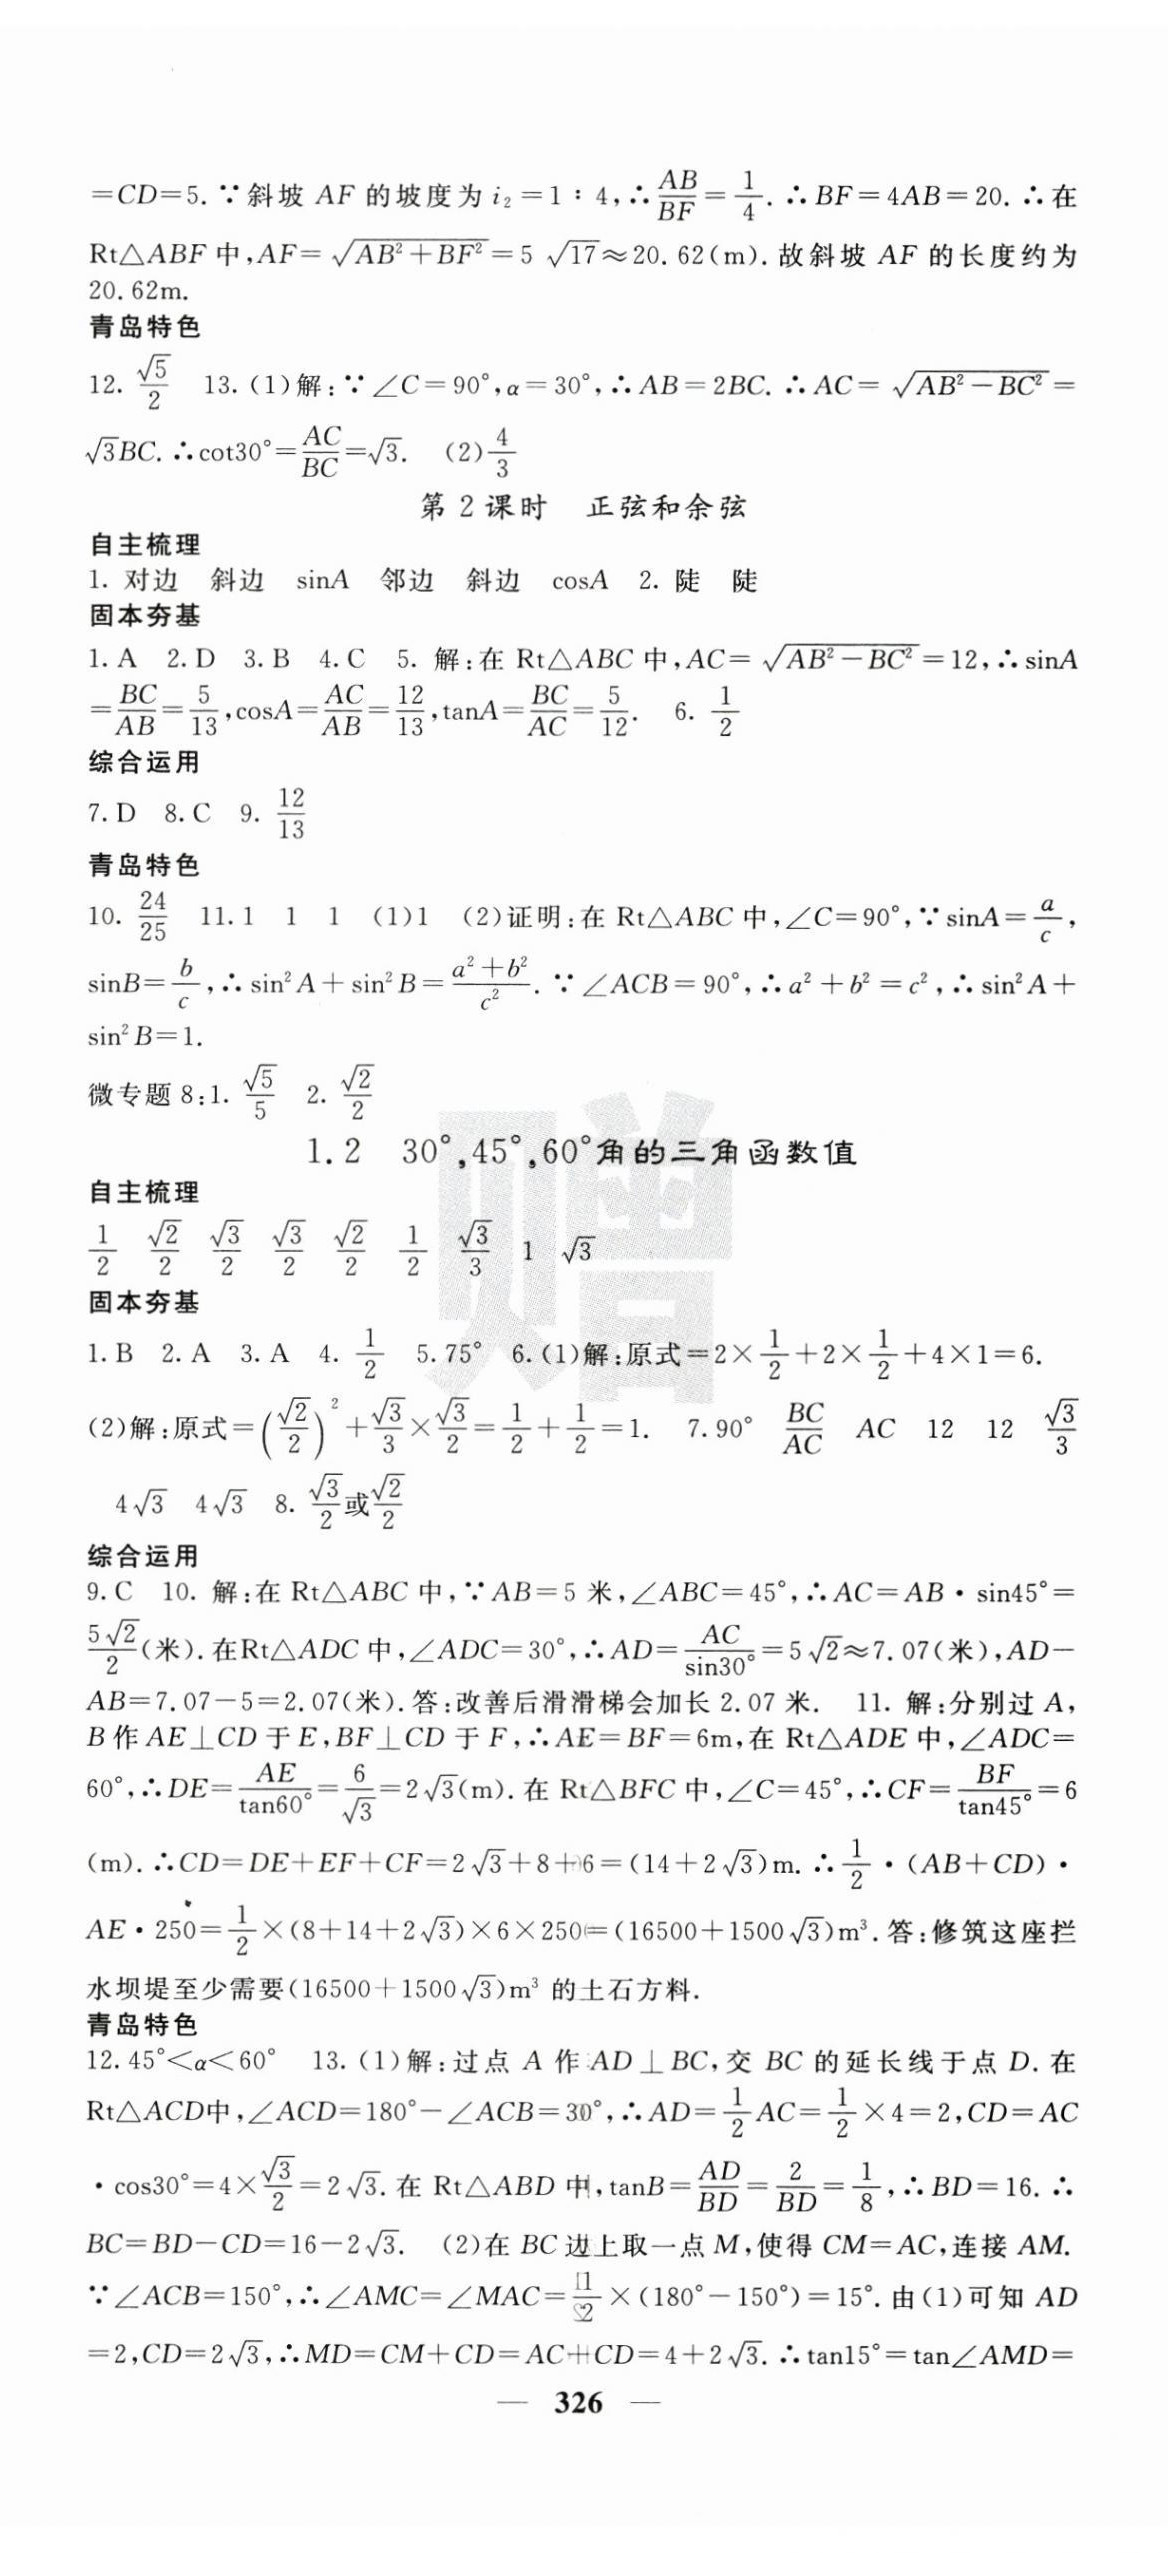 =CD=5. ∵斜坡 AF 的坡度为 i₂=1:4,∴AB/BF=1/4. ∴BF=4AB=20. ∴在
Rt△ABF 中,AF=√(AB²+BF²)=5√17≈20.62(m). 故斜坡 AF 的长度约为
20.62m.
青岛特色
12. √5/2 13. (1)解:∵∠C=90°,α=30°,∴AB=2BC. ∴AC=√(AB²-BC²)=
√3BC. ∴cot30°=AC/BC=√3. (2)4/3
第2课时 正弦和余弦
自主梳理
1. 对边 斜边 sinA 邻边 斜边 cosA 2. 陡 陡
固本夯基
1. A 2. D 3. B 4. C 5. 解:在 Rt△ABC 中,AC=√(AB²-BC²)=12,∴sinA
=BC/AB=5/13,cosA=AC/AB=12/13,tanA=BC/AC=5/12. 6. 1/2
综合运用
7. D 8. C 9. 12/13
青岛特色
10. 24/25 11. 1 1 1 (1)1 (2)证明:在 Rt△ABC 中,∠C=90°,∵sinA=a/c,
sinB=b/c,∴sin²A+sin²B=(a²+b²)/c². ∵∠ACB=90°,∴a²+b²=c²,∴sin²A+
sin²B=1.
微专题 8:1. √5/5 2. √2/2
1.2 30°,45°,60°角的三角函数值
自主梳理
1/2 √2/2 √3/2 √3/2 √2/2 1/2 √3/3 1 √3
赠
固本夯基
1. B 2. A 3. A 4. 1/2 5. 75° 6. (1)解:原式=2×1/2+2×1/2+4×1=6.
(2)解:原式=(√2/2)²+√3/3×√3/2=1/2+1/2=1. 7. 90° BC/AC AC 12 12 √3/3
4√3 4√3 8. √3/2或√2/2
综合运用
9. C 10. 解:在 Rt△ABC 中,∵AB=5 米,∠ABC=45°,∴AC=AB·sin45°=
5√2/2(米). 在Rt△ADC 中,∠ADC=30°,∴AD=AC/sin30°=5√2≈7.07(米),AD-
AB=7.07-5=2.07(米). 答:改善后滑滑梯会加长 2.07 米. 11. 解:分别过 A,
B 作 AE⊥CD 于 E,BF⊥CD 于 F,∴AE=BF=6m,在 Rt△ADE 中,∠ADC=
60°,∴DE=AE/tan60°=6/√3=2√3(m). 在 Rt△BFC 中,∠C=45°,∴CF=BF/tan45°=6
(m). ∴CD=DE+EF+CF=2√3+8+6=(14+2√3)m. ∴1/2·(AB+CD)·
AE·250=1/2×(8+14+2√3)×6×250=(16500+1500√3)m³. 答:修筑这座拦
水坝堤至少需要(16500+1500√3)m³ 的土石方料.
青岛特色
12. 45°<α<60° 13. (1)解:过点 A 作 AD⊥BC,交 BC 的延长线于点 D. 在
Rt△ACD中,∠ACD=180°-∠ACB=30°,∴AD=1/2AC=1/2×4=2,CD=AC
·cos30°=4×√3/2=2√3. 在 Rt△ABD 中,tanB=AD/BD=2/BD=1/8,∴BD=16. ∴
BC=BD-CD=16-2√3. (2)在 BC 边上取一点 M,使得 CM=AC,连接 AM.
∵∠ACB=150°,∴∠AMC=∠MAC=1/2×(180°-150°)=15°. 由(1)可知 AD
=2,CD=2√3,∴MD=CM+CD=AC+CD=4+2√3. ∴tan15°=tan∠AMD=
— 326 —